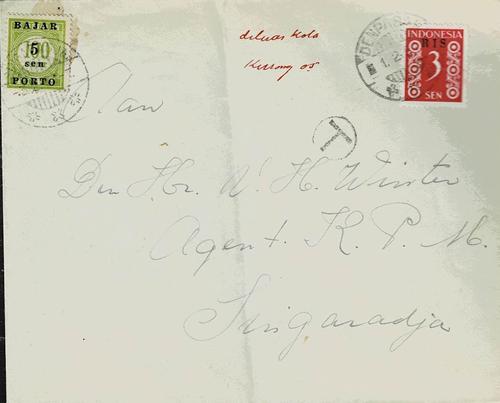 BAJAR
5
sen
PORTO
diluar kota
Kurang 05
DENPASAR
1.2
INDONESIA
RIS
3
SEN
T
Aan
Den Hr. W. H. Winter
Agent. K. P. M.
Singaradja